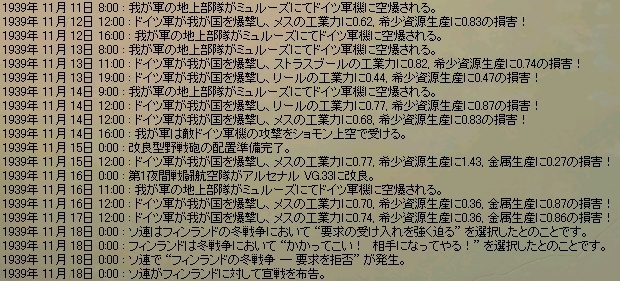 1939年 11月 11日  8:00 : 我が軍の地上部隊がミュルーズにてドイツ軍機に空爆される。
1939年 11月 12日 12:00 : ドイツ軍が我が国を爆撃し、メスの工業力に0.62, 希少資源生産に0.83の損害！
1939年 11月 12日 16:00 : 我が軍の地上部隊がミュルーズにてドイツ軍機に空爆される。
1939年 11月 13日  8:00 : 我が軍の地上部隊がミュルーズにてドイツ軍機に空爆される。
1939年 11月 13日 11:00 : ドイツ軍が我が国を爆撃し、ストラスブールの工業力に0.82, 希少資源生産に0.74の損害！
1939年 11月 13日 19:00 : ドイツ軍が我が国を爆撃し、リールの工業力に0.44, 希少資源生産に0.47の損害！
1939年 11月 14日  9:00 : 我が軍の地上部隊がミュルーズにてドイツ軍機に空爆される。
1939年 11月 14日 12:00 : ドイツ軍が我が国を爆撃し、リールの工業力に0.77, 希少資源生産に0.87の損害！
1939年 11月 14日 12:00 : ドイツ軍が我が国を爆撃し、メスの工業力に0.68, 希少資源生産に0.83の損害！
1939年 11月 14日 16:00 : 我が軍は敵ドイツ軍機の攻撃をショモン上空で受ける。
1939年 11月 15日  0:00 : 改良型野戦砲の配置準備完了。
1939年 11月 15日 12:00 : ドイツ軍が我が国を爆撃し、メスの工業力に0.77, 希少資源生産に1.43, 金属生産に0.27の損害！
1939年 11月 16日  0:00 : 第1夜間戦闘航空隊がアルセナル VG.33に改良。
1939年 11月 16日 11:00 : 我が軍の地上部隊がミュルーズにてドイツ軍機に空爆される。
1939年 11月 16日 12:00 : ドイツ軍が我が国を爆撃し、メスの工業力に0.70, 希少資源生産に0.36, 金属生産に0.87の損害！
1939年 11月 17日 12:00 : ドイツ軍が我が国を爆撃し、メスの工業力に0.74, 希少資源生産に0.36, 金属生産に0.86の損害！
1939年 11月 18日  0:00 : ソ連はフィンランドの冬戦争において “要求の受け入れを強く迫る” を選択したとのことです。
1939年 11月 18日  0:00 : フィンランドは冬戦争において “かかってこい！ 相手になってやる！” を選択したとのことです。
1939年 11月 18日  0:00 : ソ連で “フィンランドの冬戦争 ― 要求を拒否” が発生。
1939年 11月 18日  0:00 : ソ連がフィンランドに対して宣戦を布告。